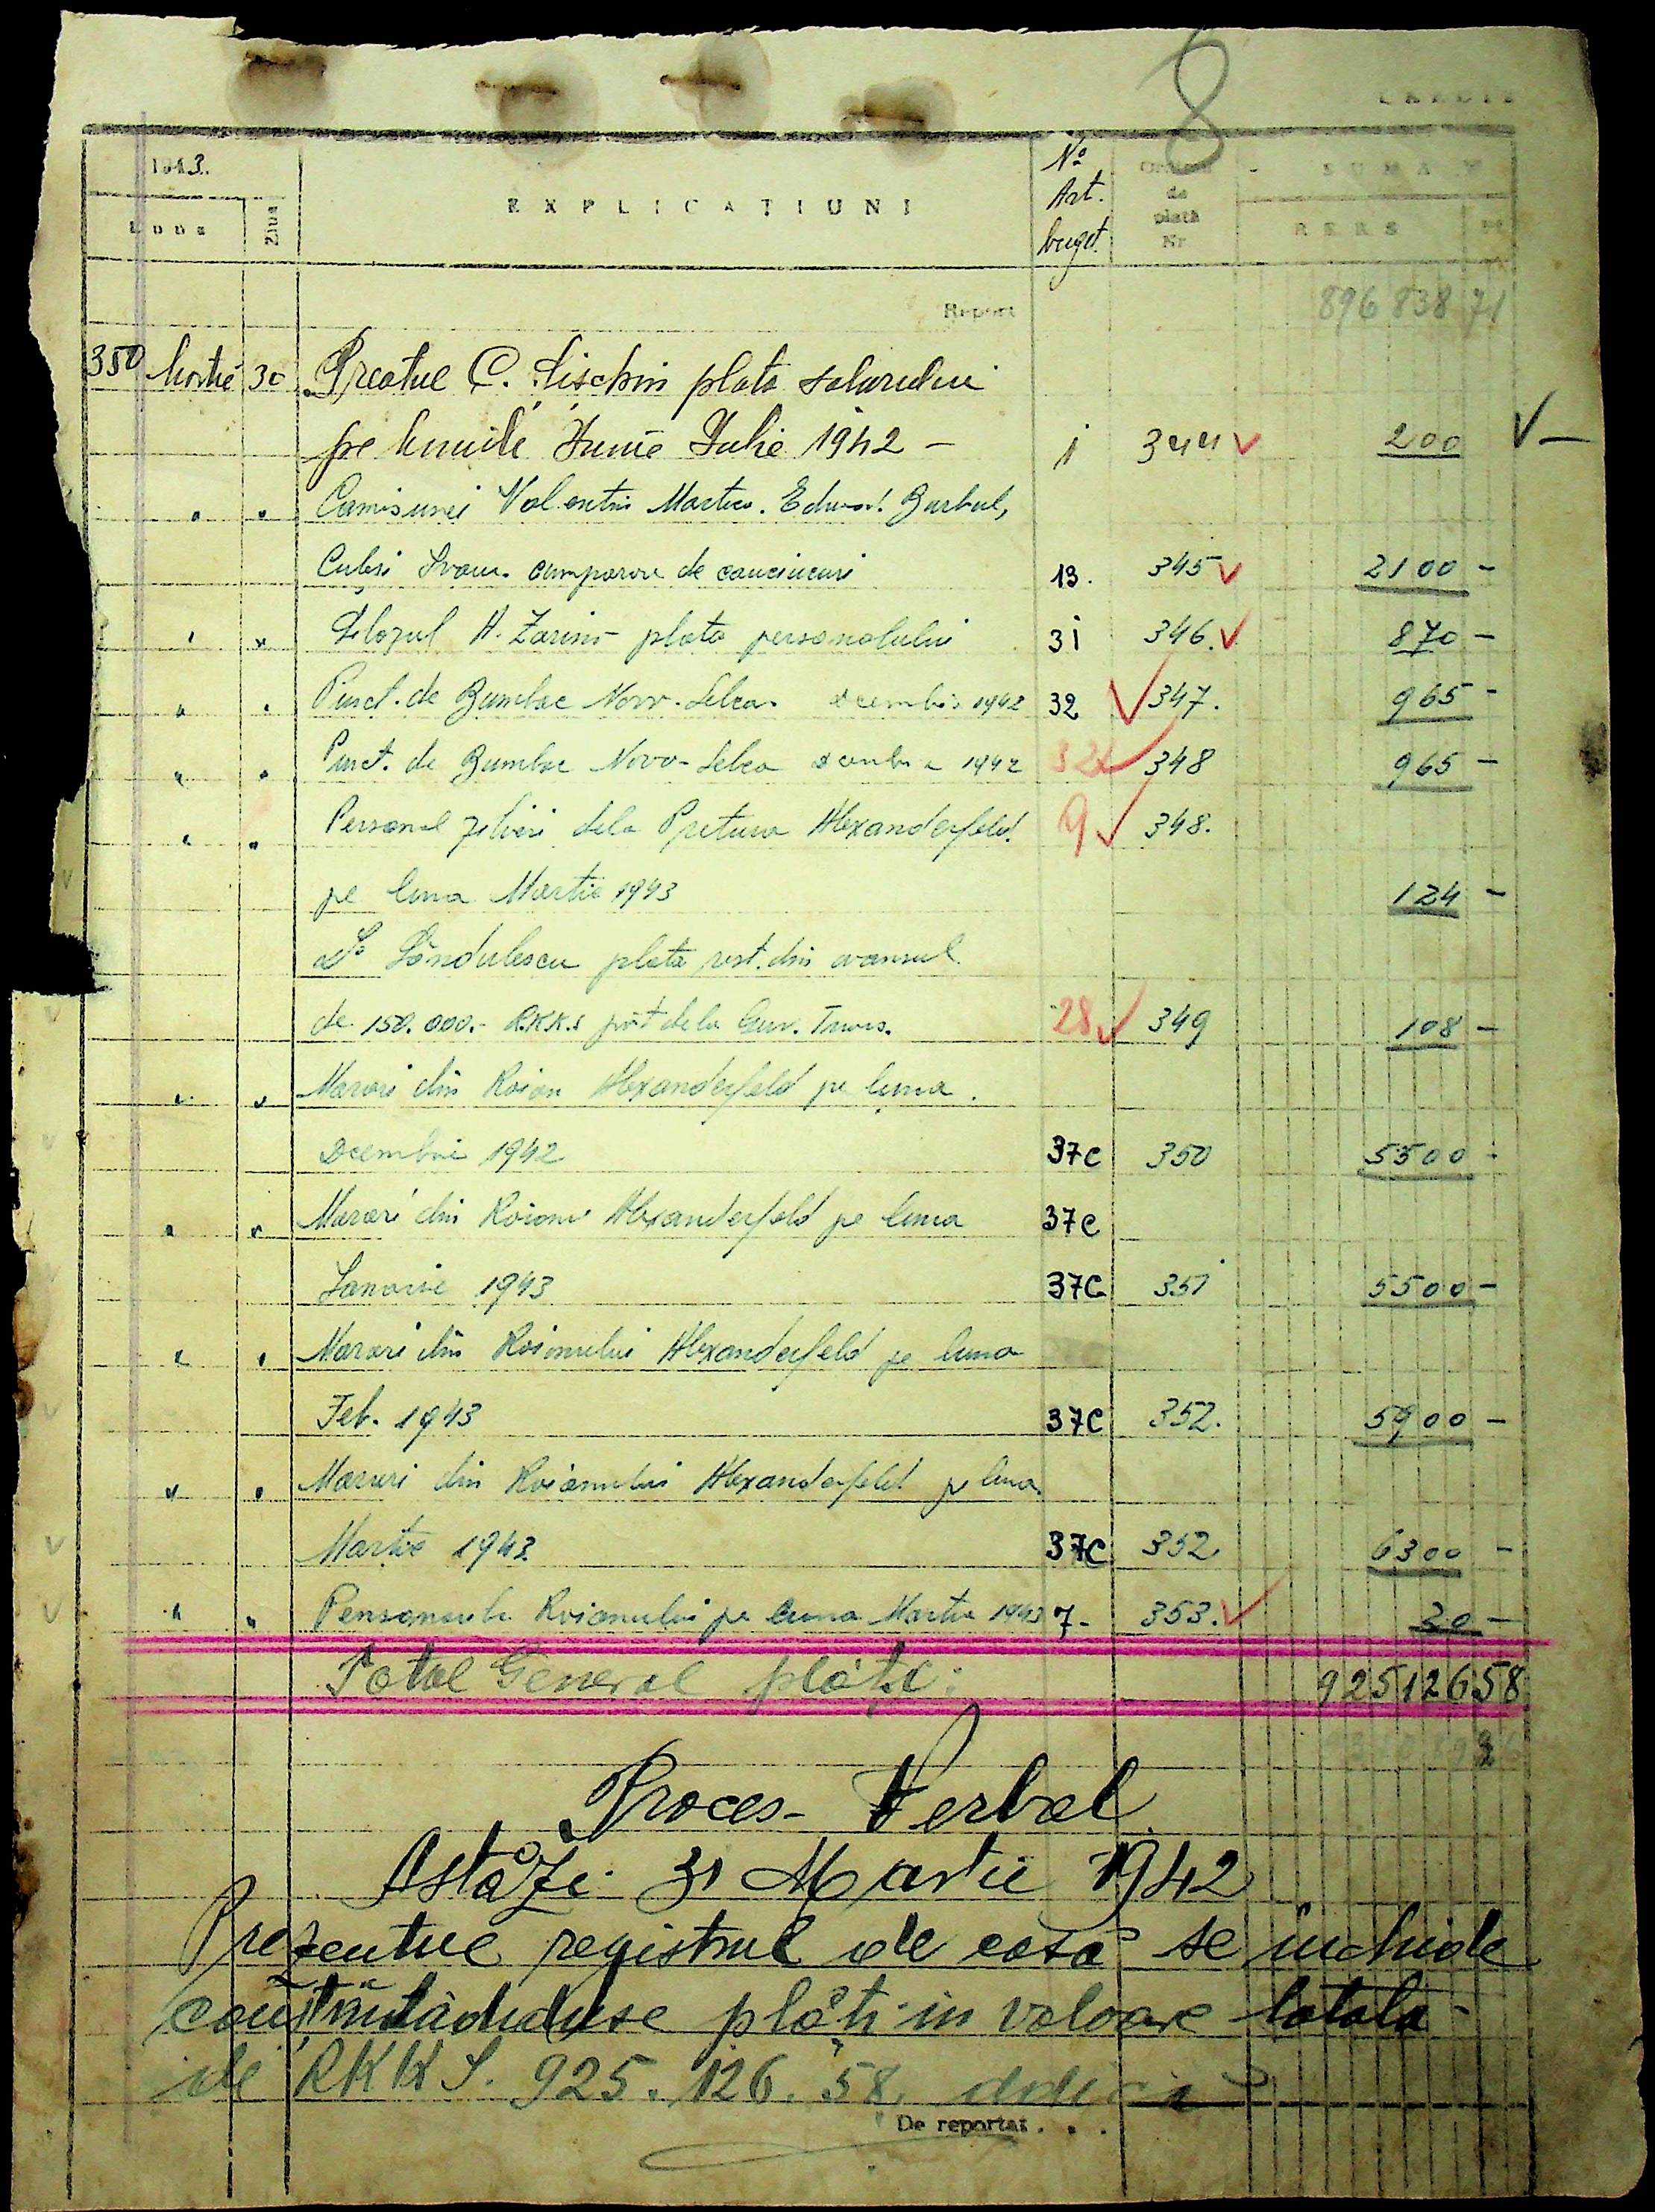 8
1943.
Luna
Ziua
EXPLICAȚIUNI
No Art. buget.
de plată Nr
SUMA
RKKS
Report
896 838 71
350 Martie 30 Preotul C. plata salarului
pe lunile Iunie Iulie 1942 - 1 344 200 -
" " Comisunei Valentin Edward
cumparare de cauciucuri 13. 345 2100 -
" " H. Zarins plata personalului 31 346. 870 -
" " Punct. de Bumbac Novo-Selca 1942 32 347. 965 -
" " Punct. de Bumbac Novo-Selca 1942 32 348 965 -
" " Personal zilieri dela Pretura Alexanderfeld 9 348.
pe luna Martie 1943 124 -
Săndulescu plata rest. din avansul
de 150.000.- R.K.K.S dela Guv. Trans. 28 349 108 -
" " din Raion Alexanderfeld pe luna
Decembrie 1942 37c 350 5500 -
" " din Alexanderfeld pe luna 37c
Ianarie 1943 37C 351 5500 -
" " din Raionului Alexanderfeld pe luna
Feb. 1943 37C 352. 5900 -
" " din Raionului Alexanderfeld pe luna
Martie 1943 37C 352 6300 -
" " Raionului pe luna Martie 1943 7- 353. 20 -
Total General plăți: 925 126 58
Proces-Verbal
Astăzi 31 Martie 1942
Prezentul registrul de casă se închide
plăți în valoare totala
de RKKS. 925.126.58,
De reportat . . .